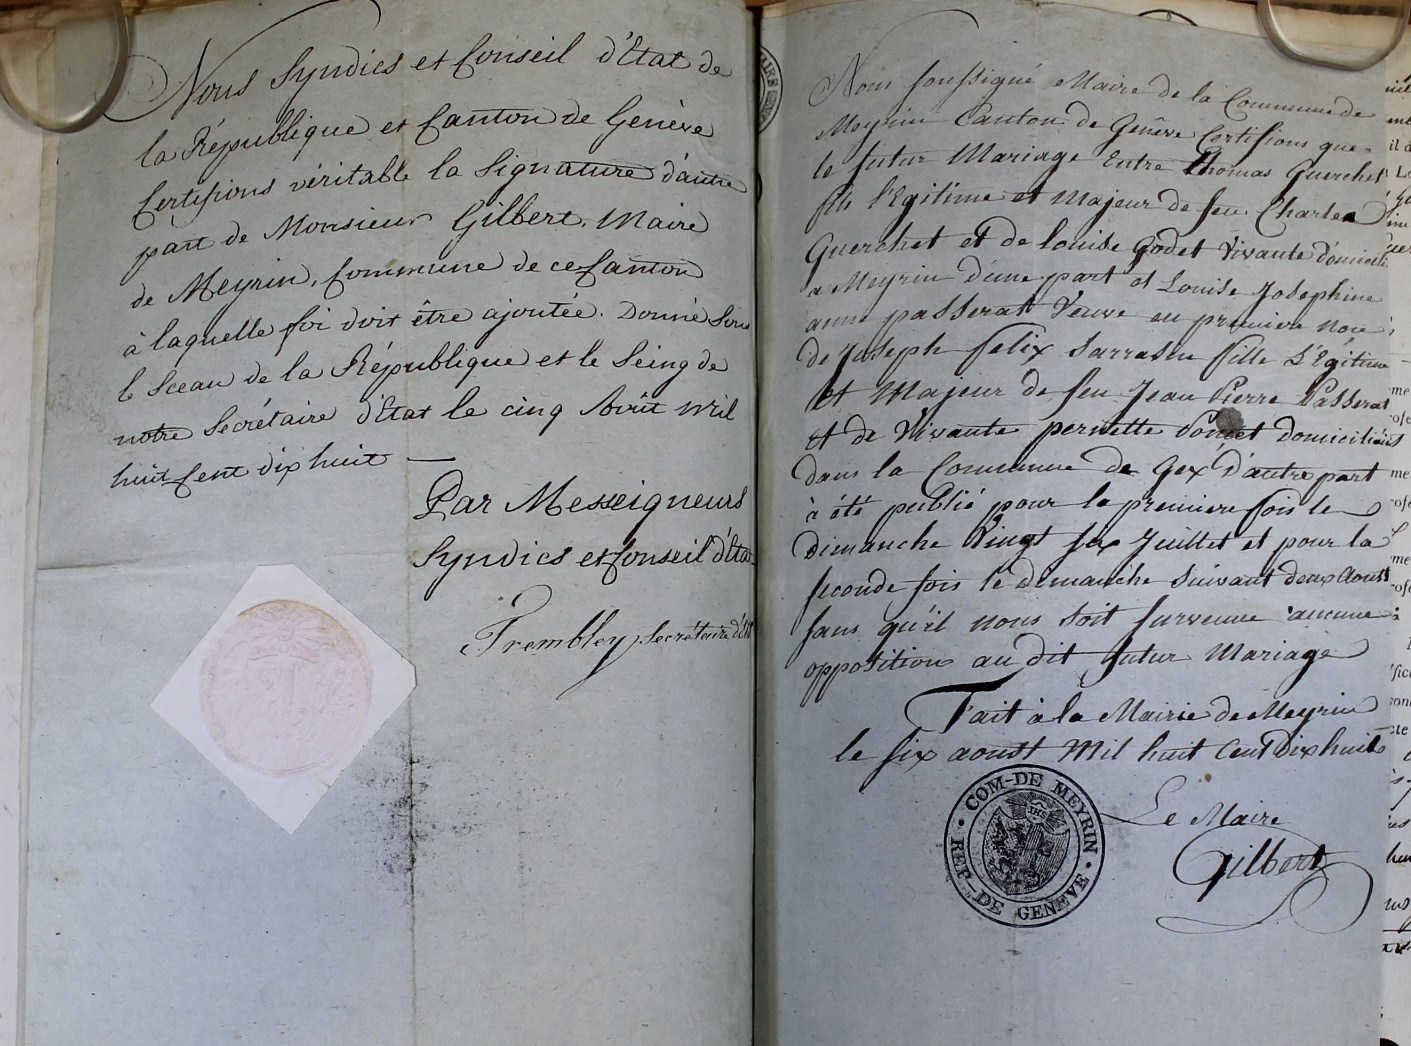 Nous Syndics et Conseil d'État de
la République et Canton de Genève
Certifions véritable la Signature d'autre
part de Monsieur Gilbert, Maire
de Meyrin, Commune de ce Canton
à laquelle foi doit être ajoutée. Donné sous
le Sceau de la République et le Seing de
notre Secrétaire d'État le cinq Août mil
huit cent dix huit —
Par Messeigneurs
Syndics et Conseil d'État
Trembley, Secrétaire d'Ét
Nous soussigné Maire de la Commune de
Meyrin Canton de Genêve Certifions que
le futur Mariage Entre Thomas Guerchet
fils l'Egitime et Majeur de feu Charles
Guerchet et de Louise Godet Vivante domicili
a Meyrin d'une part et Louise Josephine
anne passerat Veuve en premiere
de Joseph felix Sarrasin fille L'Egitime
et Majeur de feu Jean Pierre Passerat
et de Vivante pernette domiciliés
dans la Commune de Gex, d'autre part
à été publié pour la premiere fois le
dimanche Vingt six Juillet et pour la
seconde fois le demanche Suivant deux Aoust
sans qu'il nous soit survenue aucune
opposition au dit futur Mariage
Fait à la Mairie de Meyrin
le six aoust Mil huit Cent Dix huit
Le Maire
Gilbert
COM-DE MEYRIN
REP-DE GENEVE
IHS